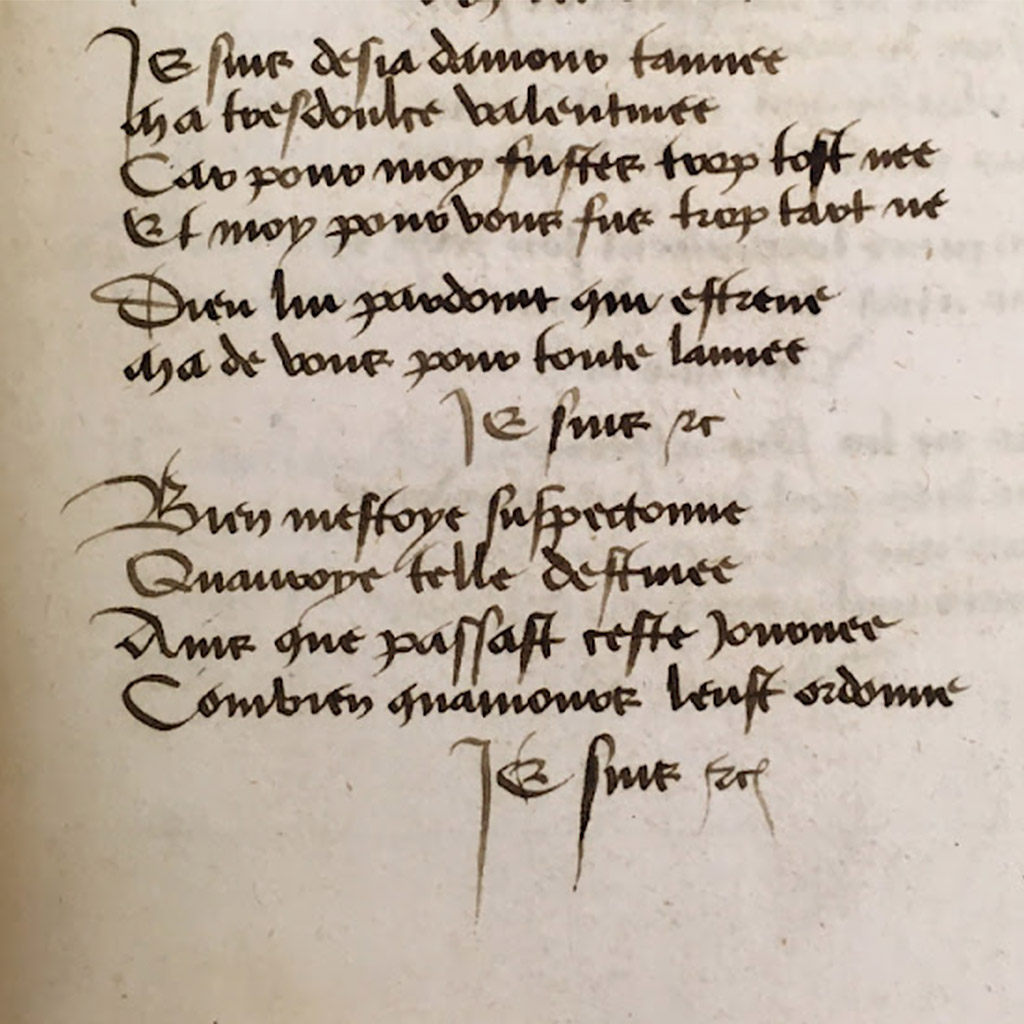 Je suis desia damour tannee
Ma tresdoulce valentinee
Car pour moy fustes trop tost nee
Et moy pour vous fus trop tart ne
Dieu lui pardoint qui estrene
Ma de vous pour toute lannee
Je suis &c
Bien mestoye suspeconne
Quauroye telle destinee
Ains que passast ceste journee
Combien quamours leust ordonne
Je suis &c